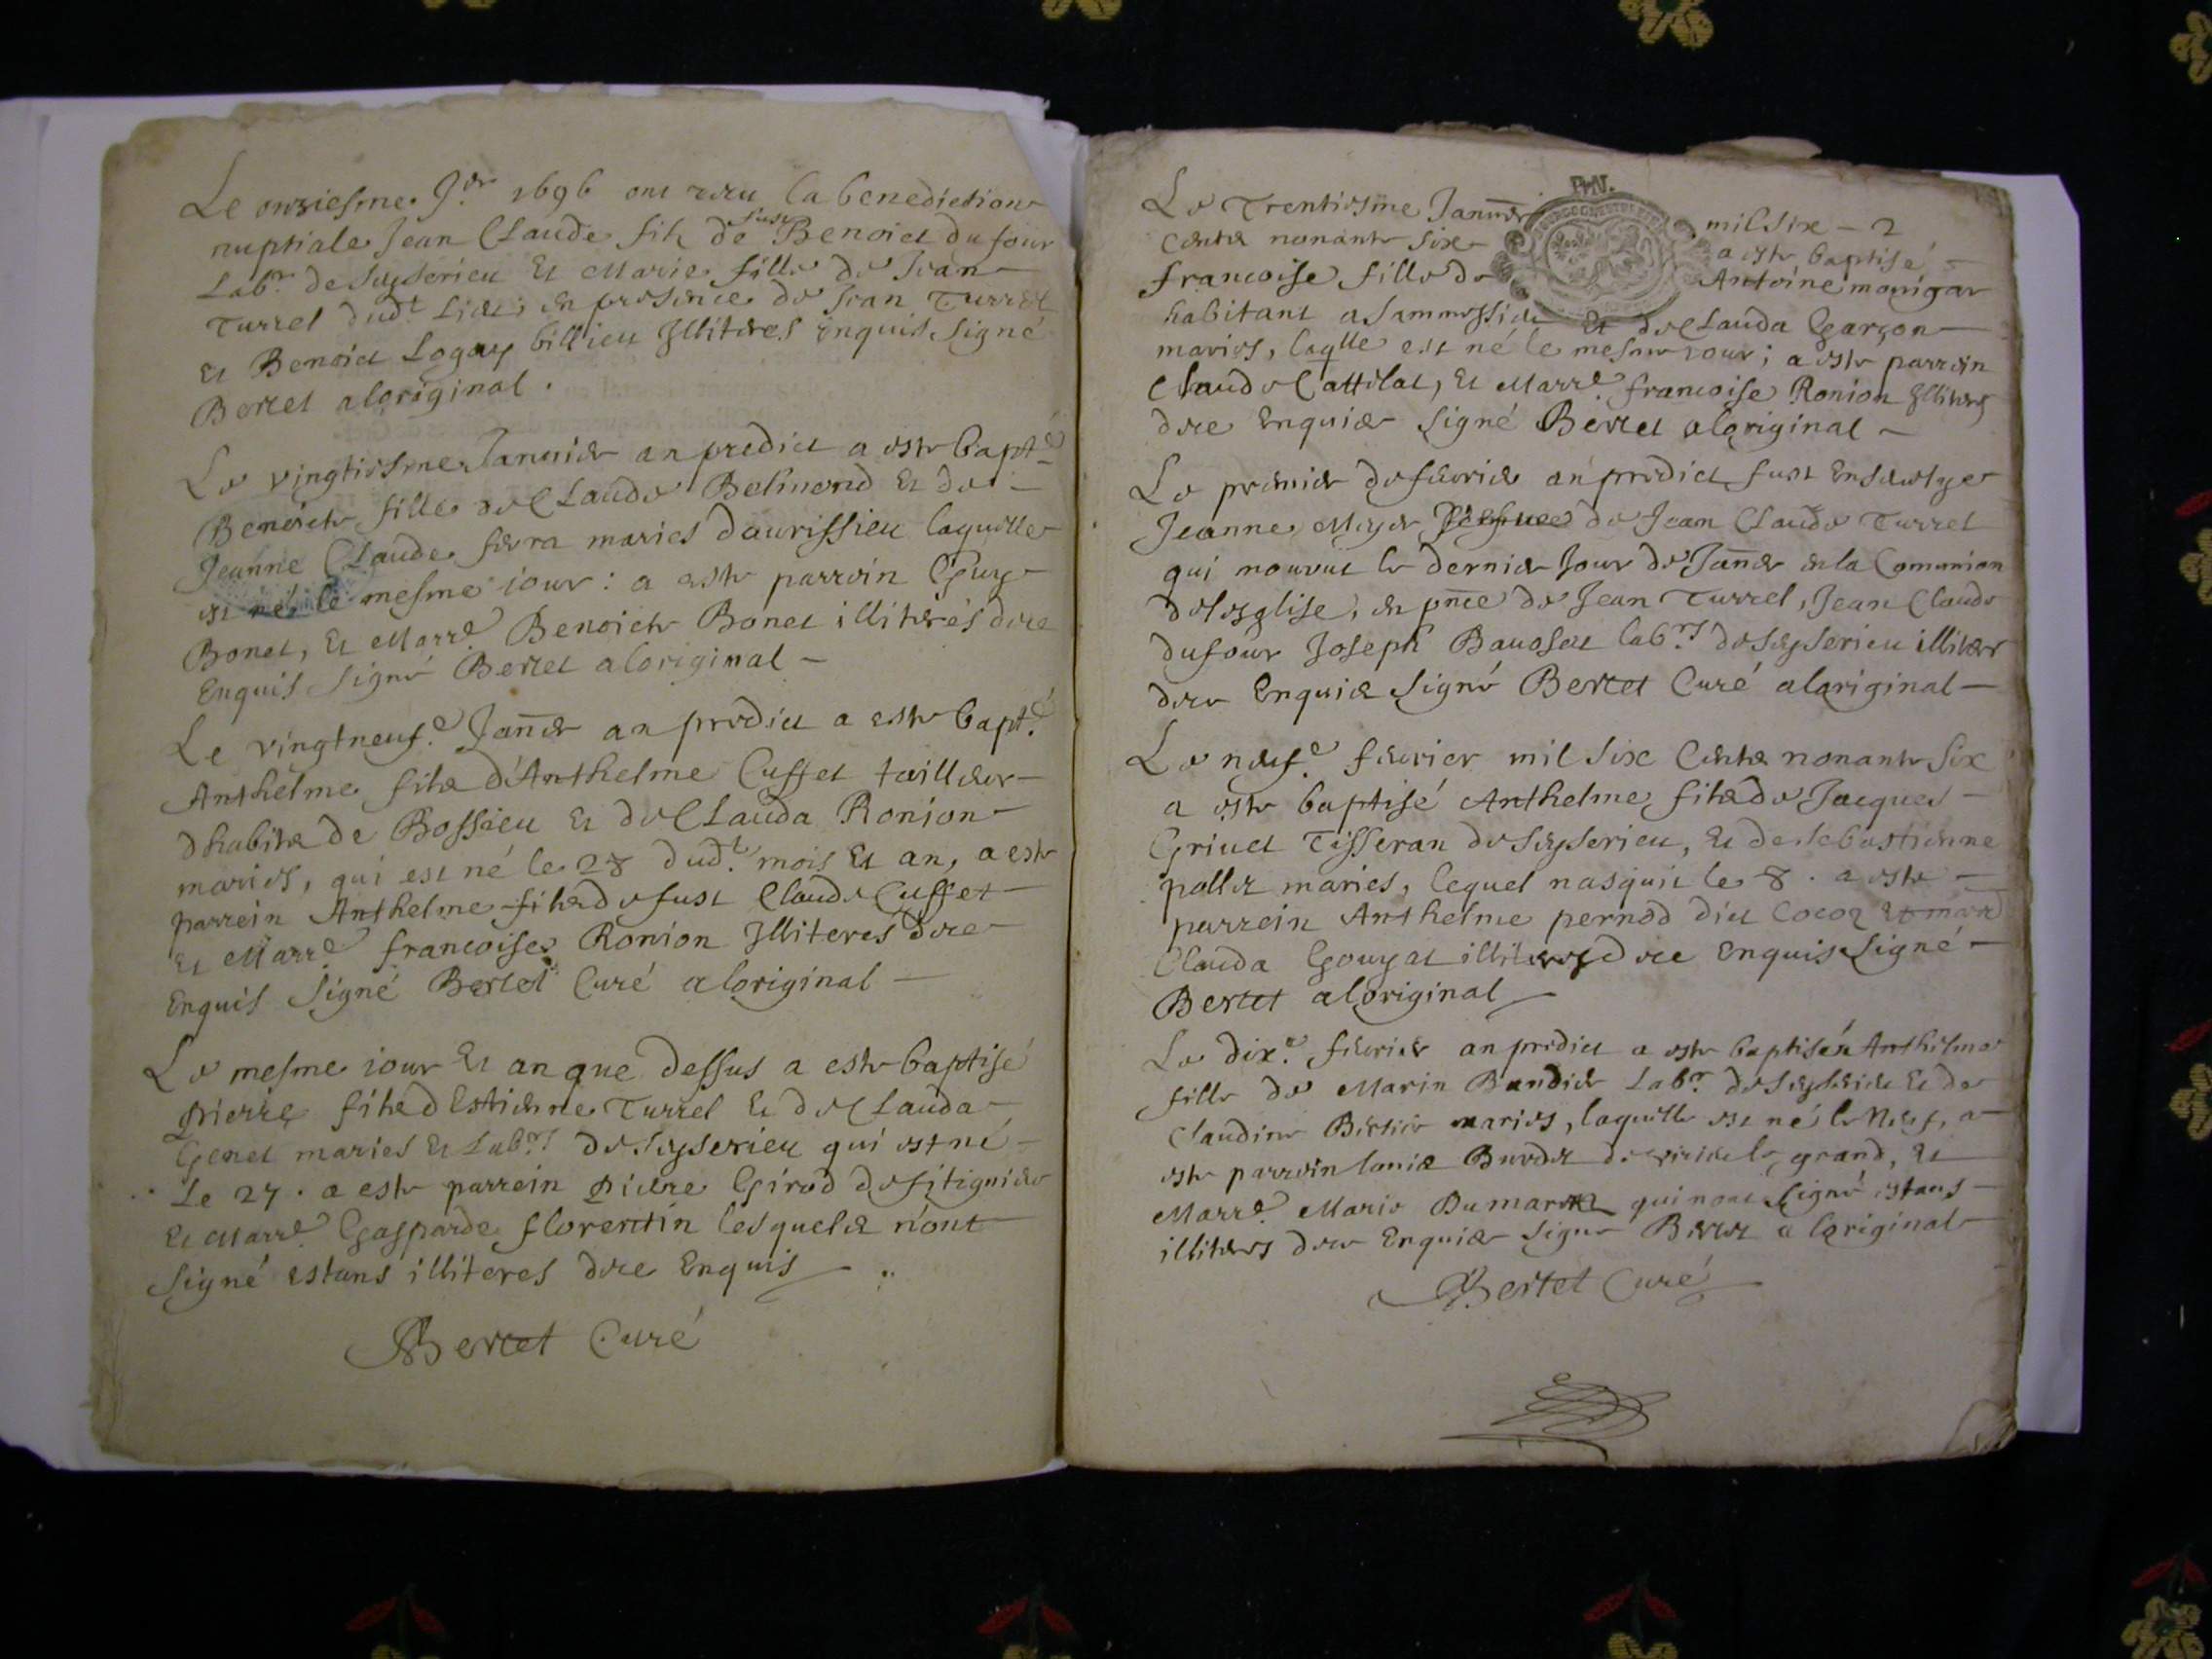 Le onziesme J.er 1696 ont receu la benediction
nuptiale Jean Claude fils de fust Benoict dufour
Lab.r de Seyserieu et Marie fille de Jean
Turrel dud.t Lieu; en presence de Jean Turrel
et Benoict Logay billieu Illiteres Enquis Signé
Bertet aloriginal.
Le vingtiesme Januier an predict a este bapt.é
Benoicte fille de Claude Belmond et de
Jeanne Claude feura maries daurissieu laquelle
est né le mesme iour: a este parrein Guy
Bonet, et Marr.e Benoicte Bonet illiterés dece
Enquis Signé Bertet aloriginal
Le vingtneuf.e Janer an predict a este bapt.é
Anthelme fils d'Anthelme Cusset tailleur
dhabits de Bossieu et de Clauda Ronion
maries, qui est né le 28 dud.t mois et an, a este
parrein Anthelme fils de fust Claude Cusset
et Marr.e francoise Ronion Illiteres dece
Enquis Signé Bertet Curé aloriginal
Le mesme iour et an que dessus a este baptisé
Pierre fils d Estienne Turrel et de Clauda
Genet maries et Lab.rs de Seyserieu qui est né
Le 27. a este parrein Pierre Girod de fitignieu
et Marr.e Gasparde florentin lesquels n'ont
Signé estans illiteres dece Enquis
Bertet Curé
Le Trentiesme Januer mil Six 2
Cents nonante Six a este baptisé
francoise fille de Antoine monigar
habitant a et de Clauda Garçon
maries, laqlle est né le mesme iour; a este parrein
Claude Cattilat, et Marr.e francoise Ronion Illiteres
dece Enquis Signé Bertet aloriginal
Le premier de feurier an predict fust Enseuelye
Jeanne de Jean Claude Turrel
qui mourut le dernier Jour de Janer en la Comunion
de lesglise, en pnce de Jean Turrel, Jean Claude
dufour Joseph Bauoset lab.rs de Seyserieu illiteres
dece Enquis Signé Bertet Curé aloriginal
Le neuf.e feurier mil Six Cents nonante Six
a este baptisé Anthelme fils de Jacques
Griuet Tisseran de Seyserieu, et de Sebastienne
pollet maries, lequel nasquit le 8. a este
parrein Anthelme pernod dict Cocoz et marr
Clauda Gouyat illiteres dece Enquis Signé
Bertet aloriginal
Le dix.e feurier an predict a este baptisée Anthelme
fille de Marin Bandier Lab.r de Seyserieu et de
Claudine maries, laquelle est né le Neuf, a
este parrein le grand, et
Marr.e Marie Dumarest qui nont Signé estans
illiteres dece Enquis Signe Bertet a loriginal
Bertet Curé